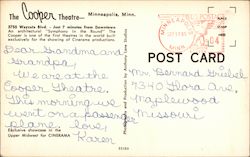 The Cooper Theatre— Minneapolis, Minn.
5755 Wayzata Blvd. - Just 7 minutes from Downtown
An architectural "Symphony in the Round" The
Cooper is one of the first theatres in the world built
exclusively for the showing of Cinerama productions.
Dear Grandma and
Grandpa,
We are at the
Cooper Theatre.
This morning we
went on a passenger
plane. love,
Karen
Exclusive showcase in the
Upper Midwest for CINERAMA
POST CARD
Mr. Bernard
7340 Flora Ave.
Maplewood
Missouri